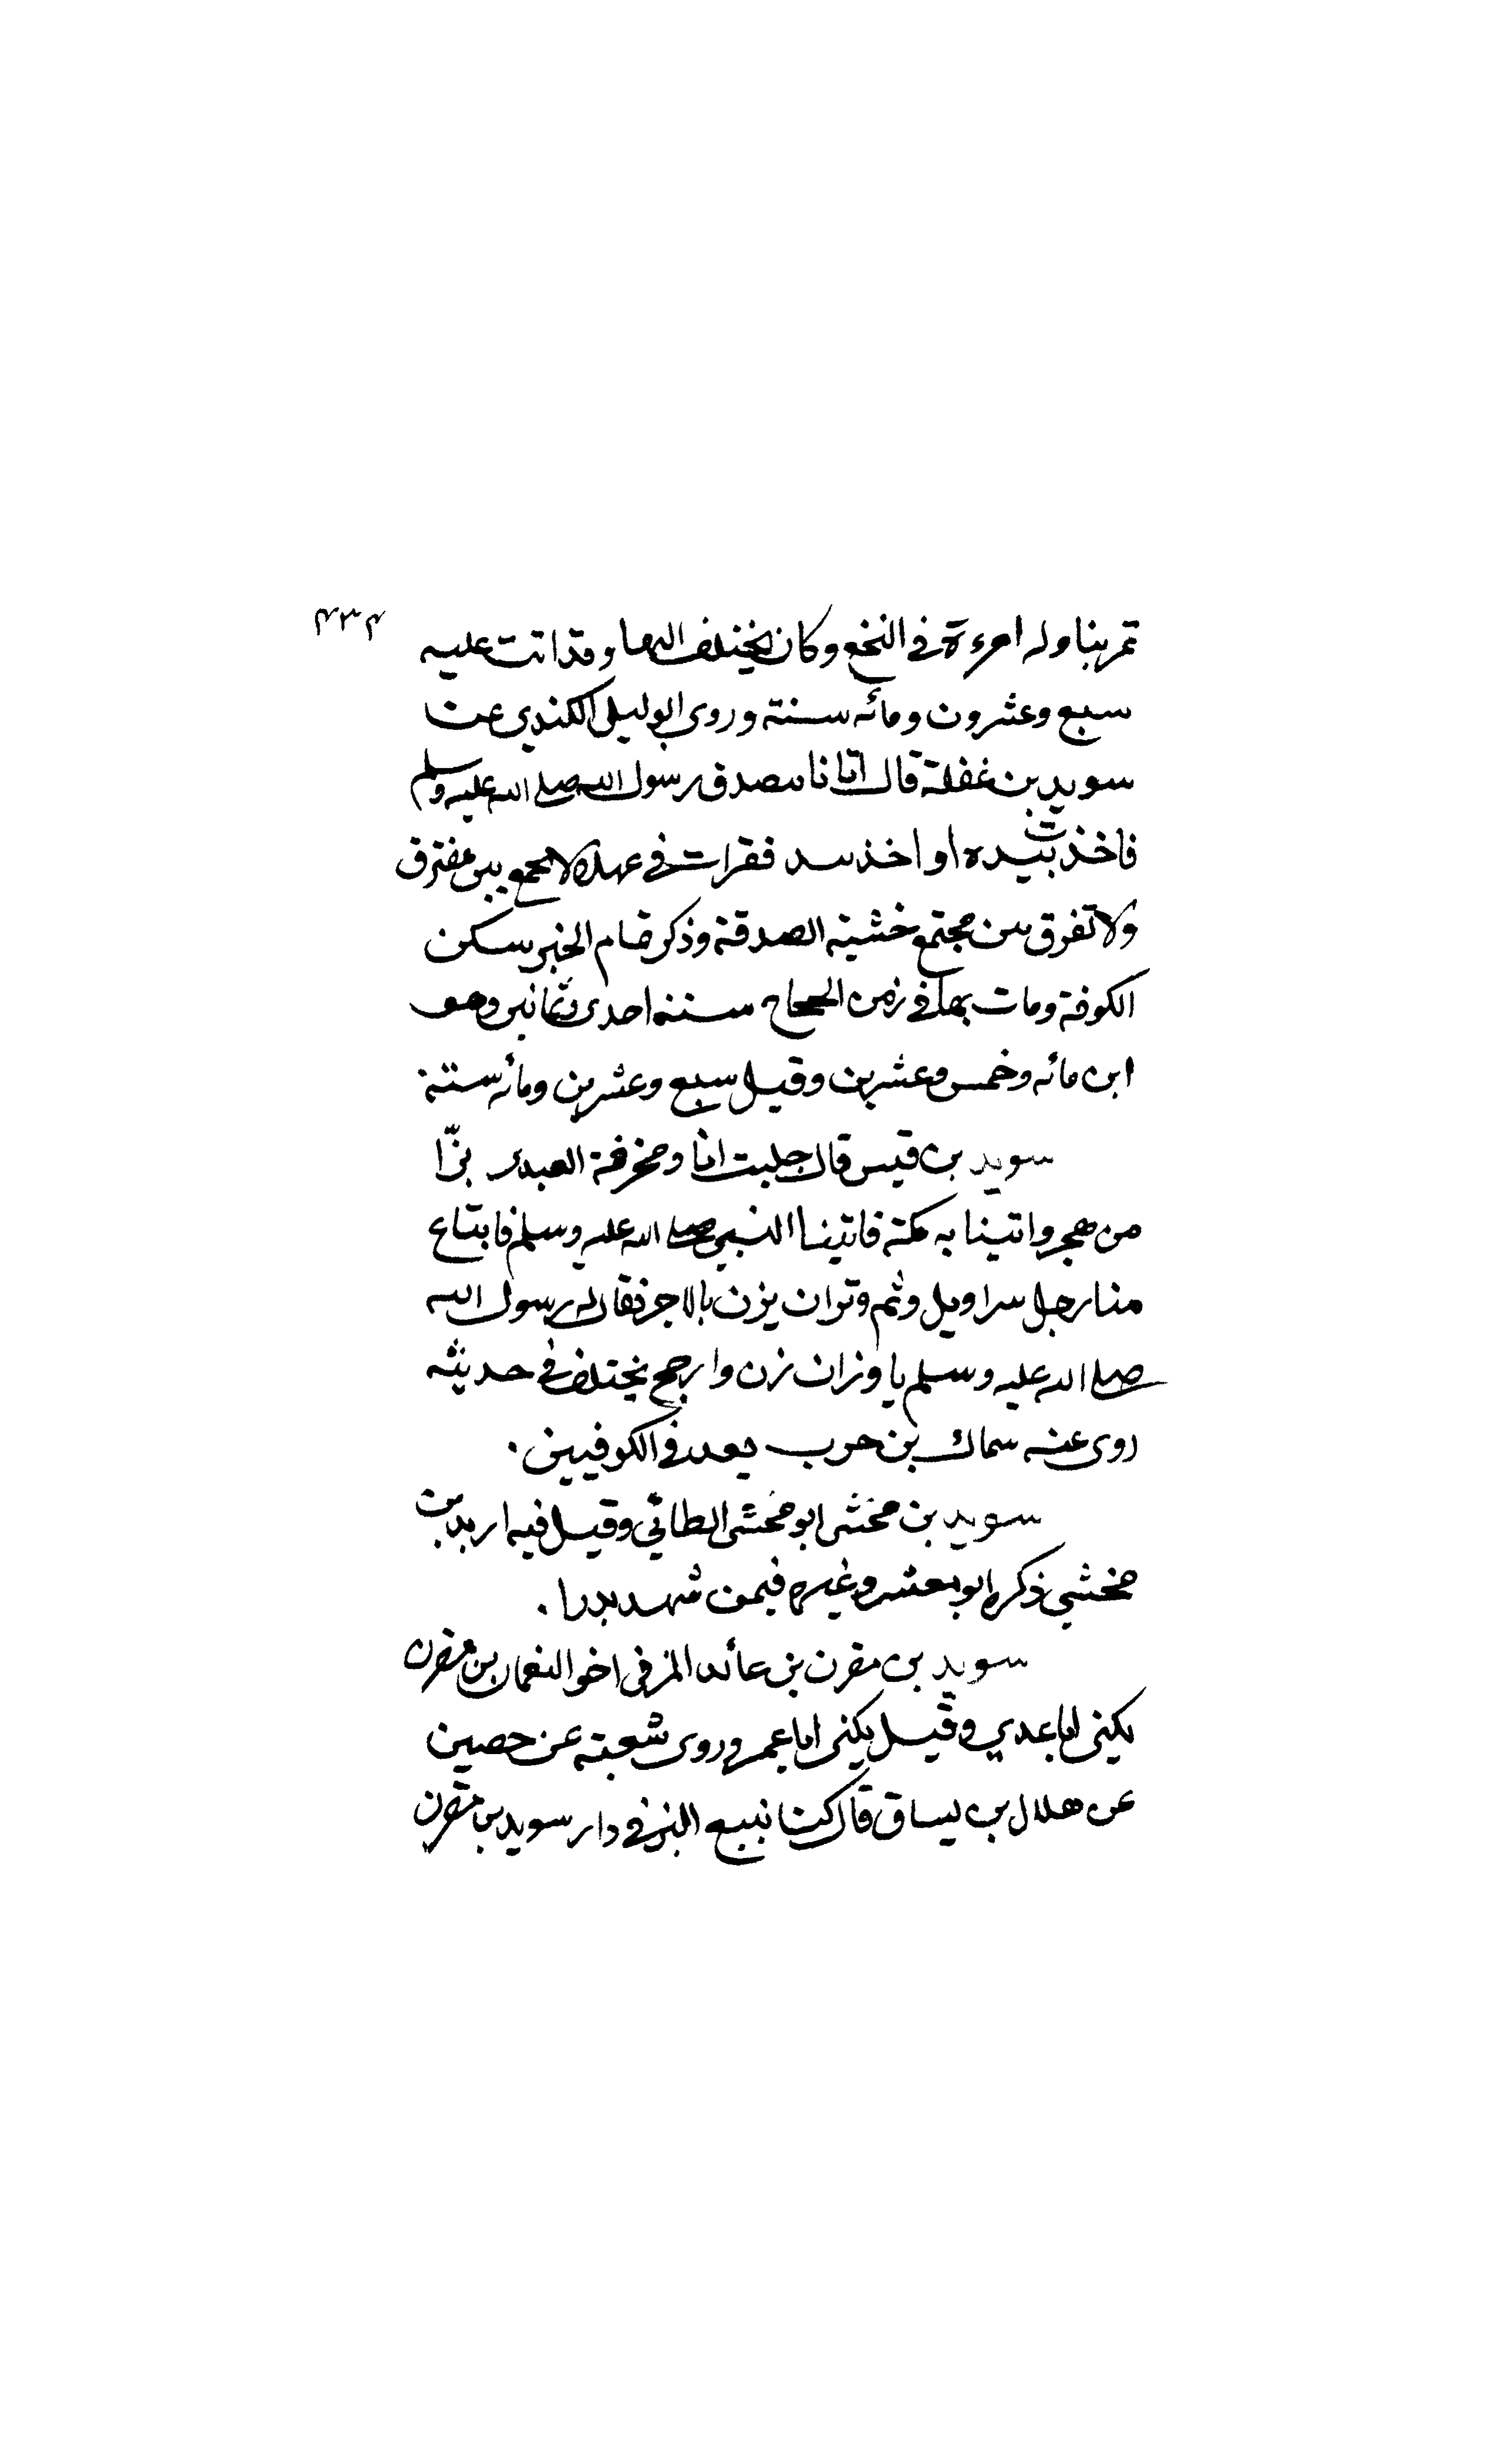 ٤٣٤
تمر بنا وله امرءة في النخع وكان يختلف اليها وقد اتت عليه
سبع وعشرون ومائه سنة وروى ابو ليلى الكندي عن
سويد بن غفلة قال اتانا مصدق رسول الله صلى الله عليه وسلم
فاخذت بيده او اخذ بيد فقرات في عهده لا يجمع بين مفترق
ولا تفرق بين مجتمع خشية الصدقة وذكر تمام الخبر سكن
الكوفة ومات بها في زمن الحجاج سنة احدى وثمانين وهو
ابن مائه وخمس وعشرين وقيل سبع وعشرين ومائه سنة
سويد بن قيس قال جلبت انا ومخرفة العبدي بزّا
من هجر واتينا به مكة فاتينا النبي صلى الله عليه وسلم فابتاع
منا رجل سراويل وثم وزان يزن بالاجر فقال له رسول الله
صلى الله عليه وسلم يا وزان زن وارجح يختلف في حديثه
روى عنه سماك بن حرب يعد في الكوفيين .
سويد بن مخشى ابو مخشى الطائي وقيل فيه اربد بن
مخشي ذكره ابو معشر وغيره فيمن شهد بدرا .
سويد بن مقرن بن عائد المزني اخو النعمان بن مقرن
يكنى ابا عدي وقيل يكنى ابا عمر وروى شعبة عن حصين
عن هلال بن يساف قال كنا نبيع البز في دار سويد بن مقرن